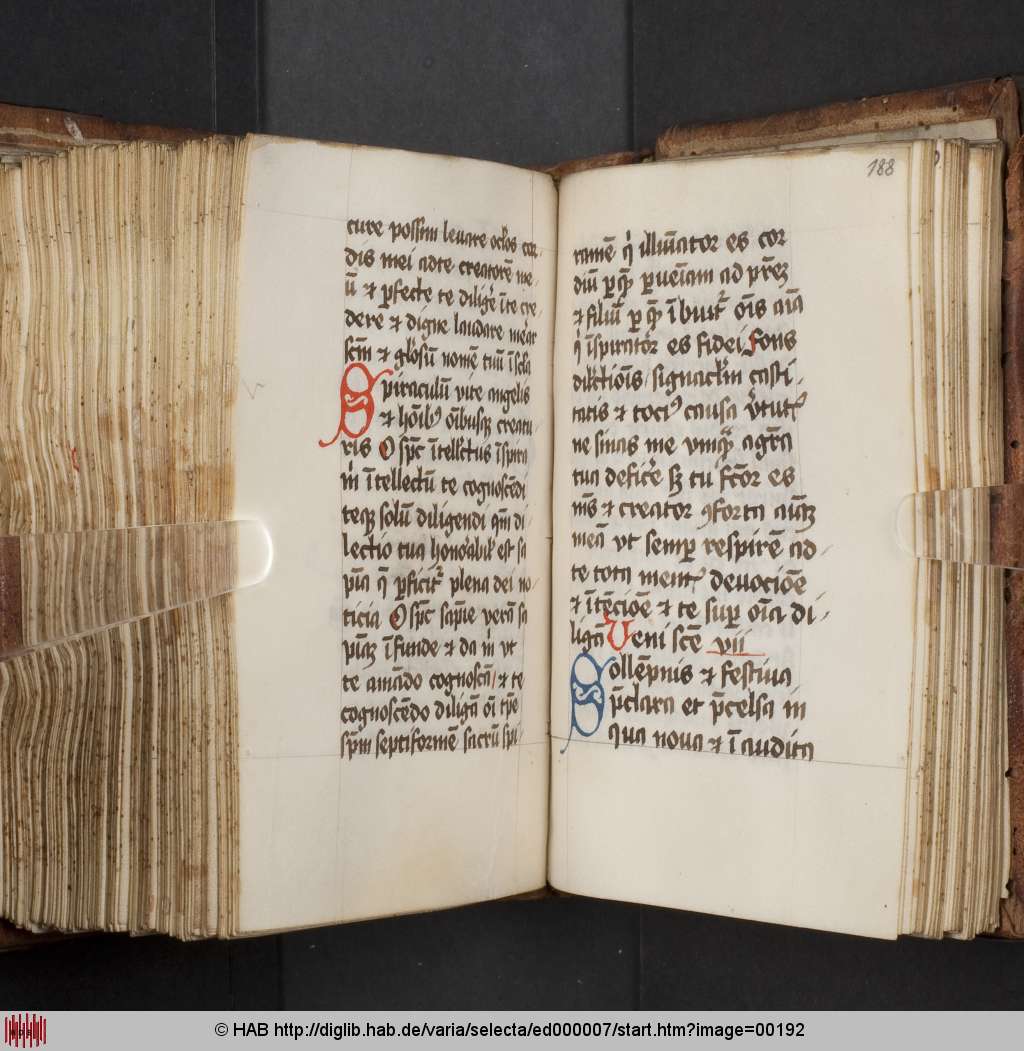 cure possim levare oc̄los cor-
dis mei adte creatorē me-
ū et ꝑfecte te diligē īte cre
dere et digne laudare mēar
scm̄ et gl̄osū nomē tuū ī scl̄a
Spiraculū vite angelis
et hoībꝰ oībusqꝫ creatu
ris O sp̄c ītellectus īspira
m̄ ī tellectū te cognoscēdi
teqꝫ solū diligendi qm̄ di
lectio tua honorabil̓ est sa
pīa q̄ ꝑficit᷑ plena dei no-
ticia O sp̄c sapīe verā sa
pīaꝫ īfunde et da m̄ vt
te amādo cognoscā / et te
cognoscēdo diligā oī tp̄e
sp̄m septiformē sacrū spi-
188
ramē q̄ illūator es cor
diū ꝑ quē ꝑveīam ad pr̄eꝫ
et filiū ꝑ quē ībuit᷑ oīs aīa
q̄ īspirator es fidei Fons
dilectiōis / signaclm̄ casti-
tatis et tociꝰ causa v̓tut᷑
ne sinas me vmqꝫ a gr̄a
tua defic̓e sꝫ tu fc̄or es
mīs et creator ꝯforta aīaꝫ
meā vt semꝑ respirē ad-
te tota ment᷑ devociōe
et ītēciōe et te suꝑ oīa di-
ligā Veni scē vii
Sollēpnis et festiva
p̄clara et p̄celsa in
qua nova et ī audita
© HAB http://diglib.hab.de/varia/selecta/ed000007/start.htm?image=00192